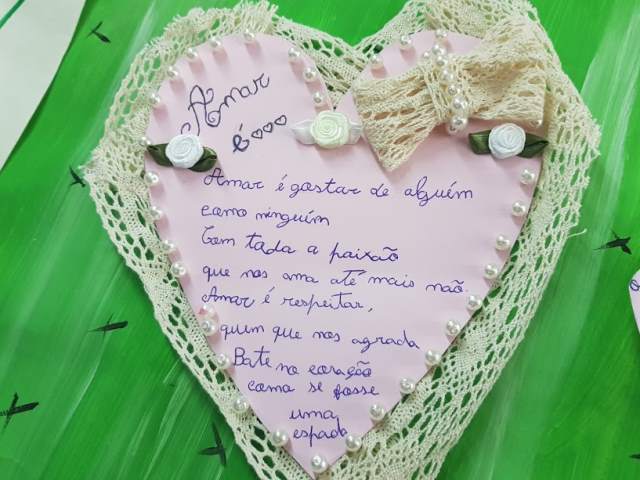 Amar
é...
Amar é gostar de alguém
como ninguém
Com toda a paixão
que nos ama até mais não.
Amar é respeitar,
quem que nos agrada
Bate no coração
como se fosse
uma
espada